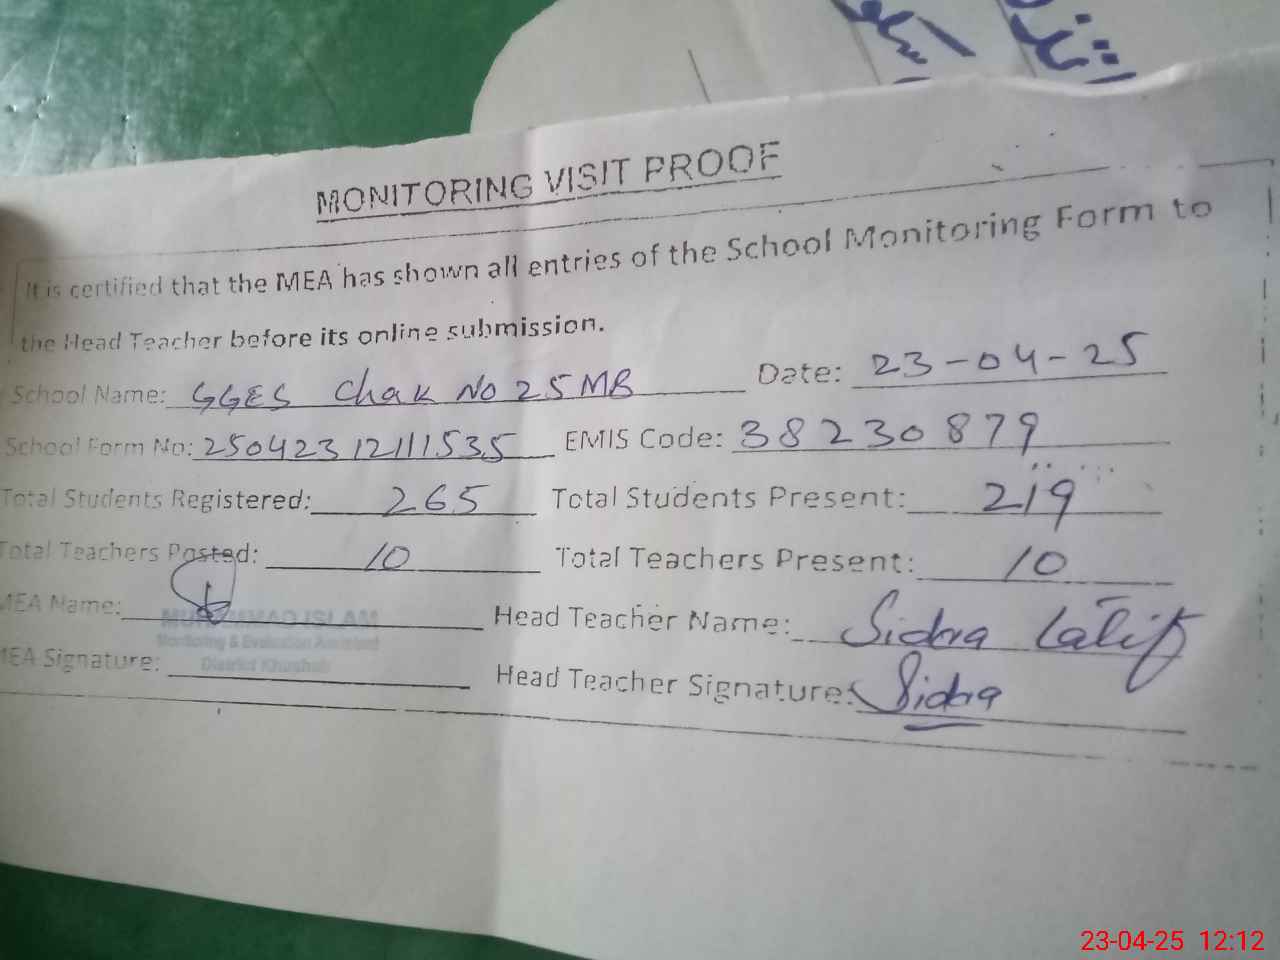 MONITORING VISIT PROOF
It is certified that the MEA has shown all entries of the School Monitoring Form to
the Head Teacher before its online submission.
School Name: GGES Chak No 25 MB Date: 23-04-25
School Form No: 25042312111535 EMIS Code: 38230879
Total Students Registered: 265 Total Students Present: 219
Total Teachers Posted: 10 Total Teachers Present: 10
MEA Name: MUHAMMAD ISLAM Head Teacher Name: Sidra Latif
Monitoring & Evaluation Assistant
District Khushab
MEA Signature: Head Teacher Signature: Sidra
23-04-25 12:12